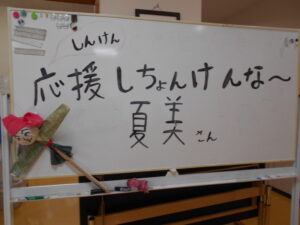 しんけん
応援しちょんけんな〜
夏美さん